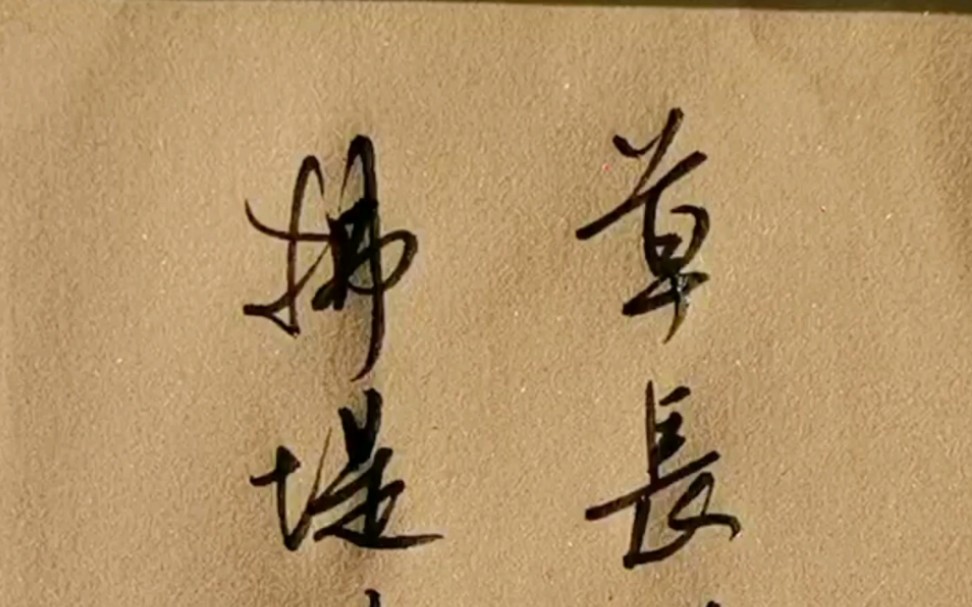 草長
拂堤